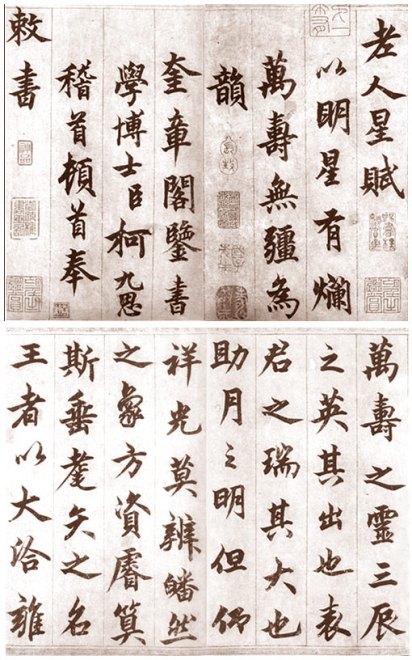 老人星賦
以明星有爛
萬壽無疆為
韻
奎章閣鑒書
學博士臣柯九思
稽首頓首奉
敕書
萬壽之靈三辰
之英其出也表
君之瑞其大也
助月之明但仰
祥光莫辨皤然
之象方資睿算
斯垂耄矣之名
王者以大洽雍